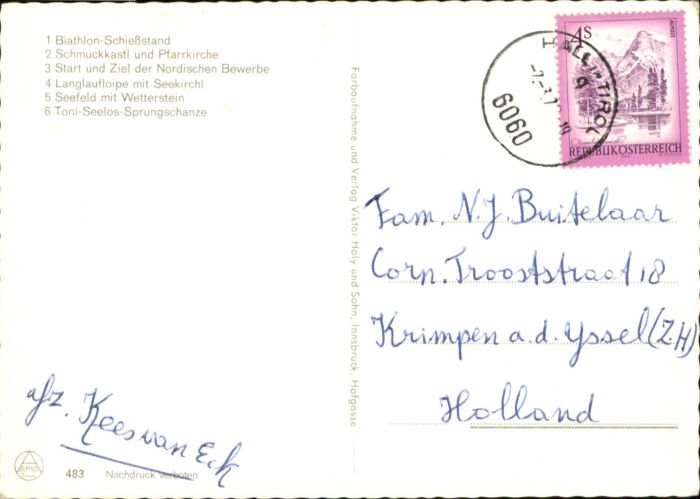 1 Biathlon-Schießstand
2 Schmuckkastl und Pfarrkirche
3 Start und Ziel der Nordischen Bewerbe
4 Langlaufloipe mit Seekirchl
5 Seefeld mit Wetterstein
6 Toni-Seelos-Sprungschanze
Farbaufnahme und Verlag Viktor Holy und Sohn, Innsbruck, Hofgasse
4S
REPUBLIK ÖSTERREICH
HALL IN TIROL
6060
Fam. N.J. Buitelaar
Corn. Trooststraat 18
Krimpen a.d. Yssel (Z.H)
Holland
afz. Kees van Eck
483 Nachdruck verboten